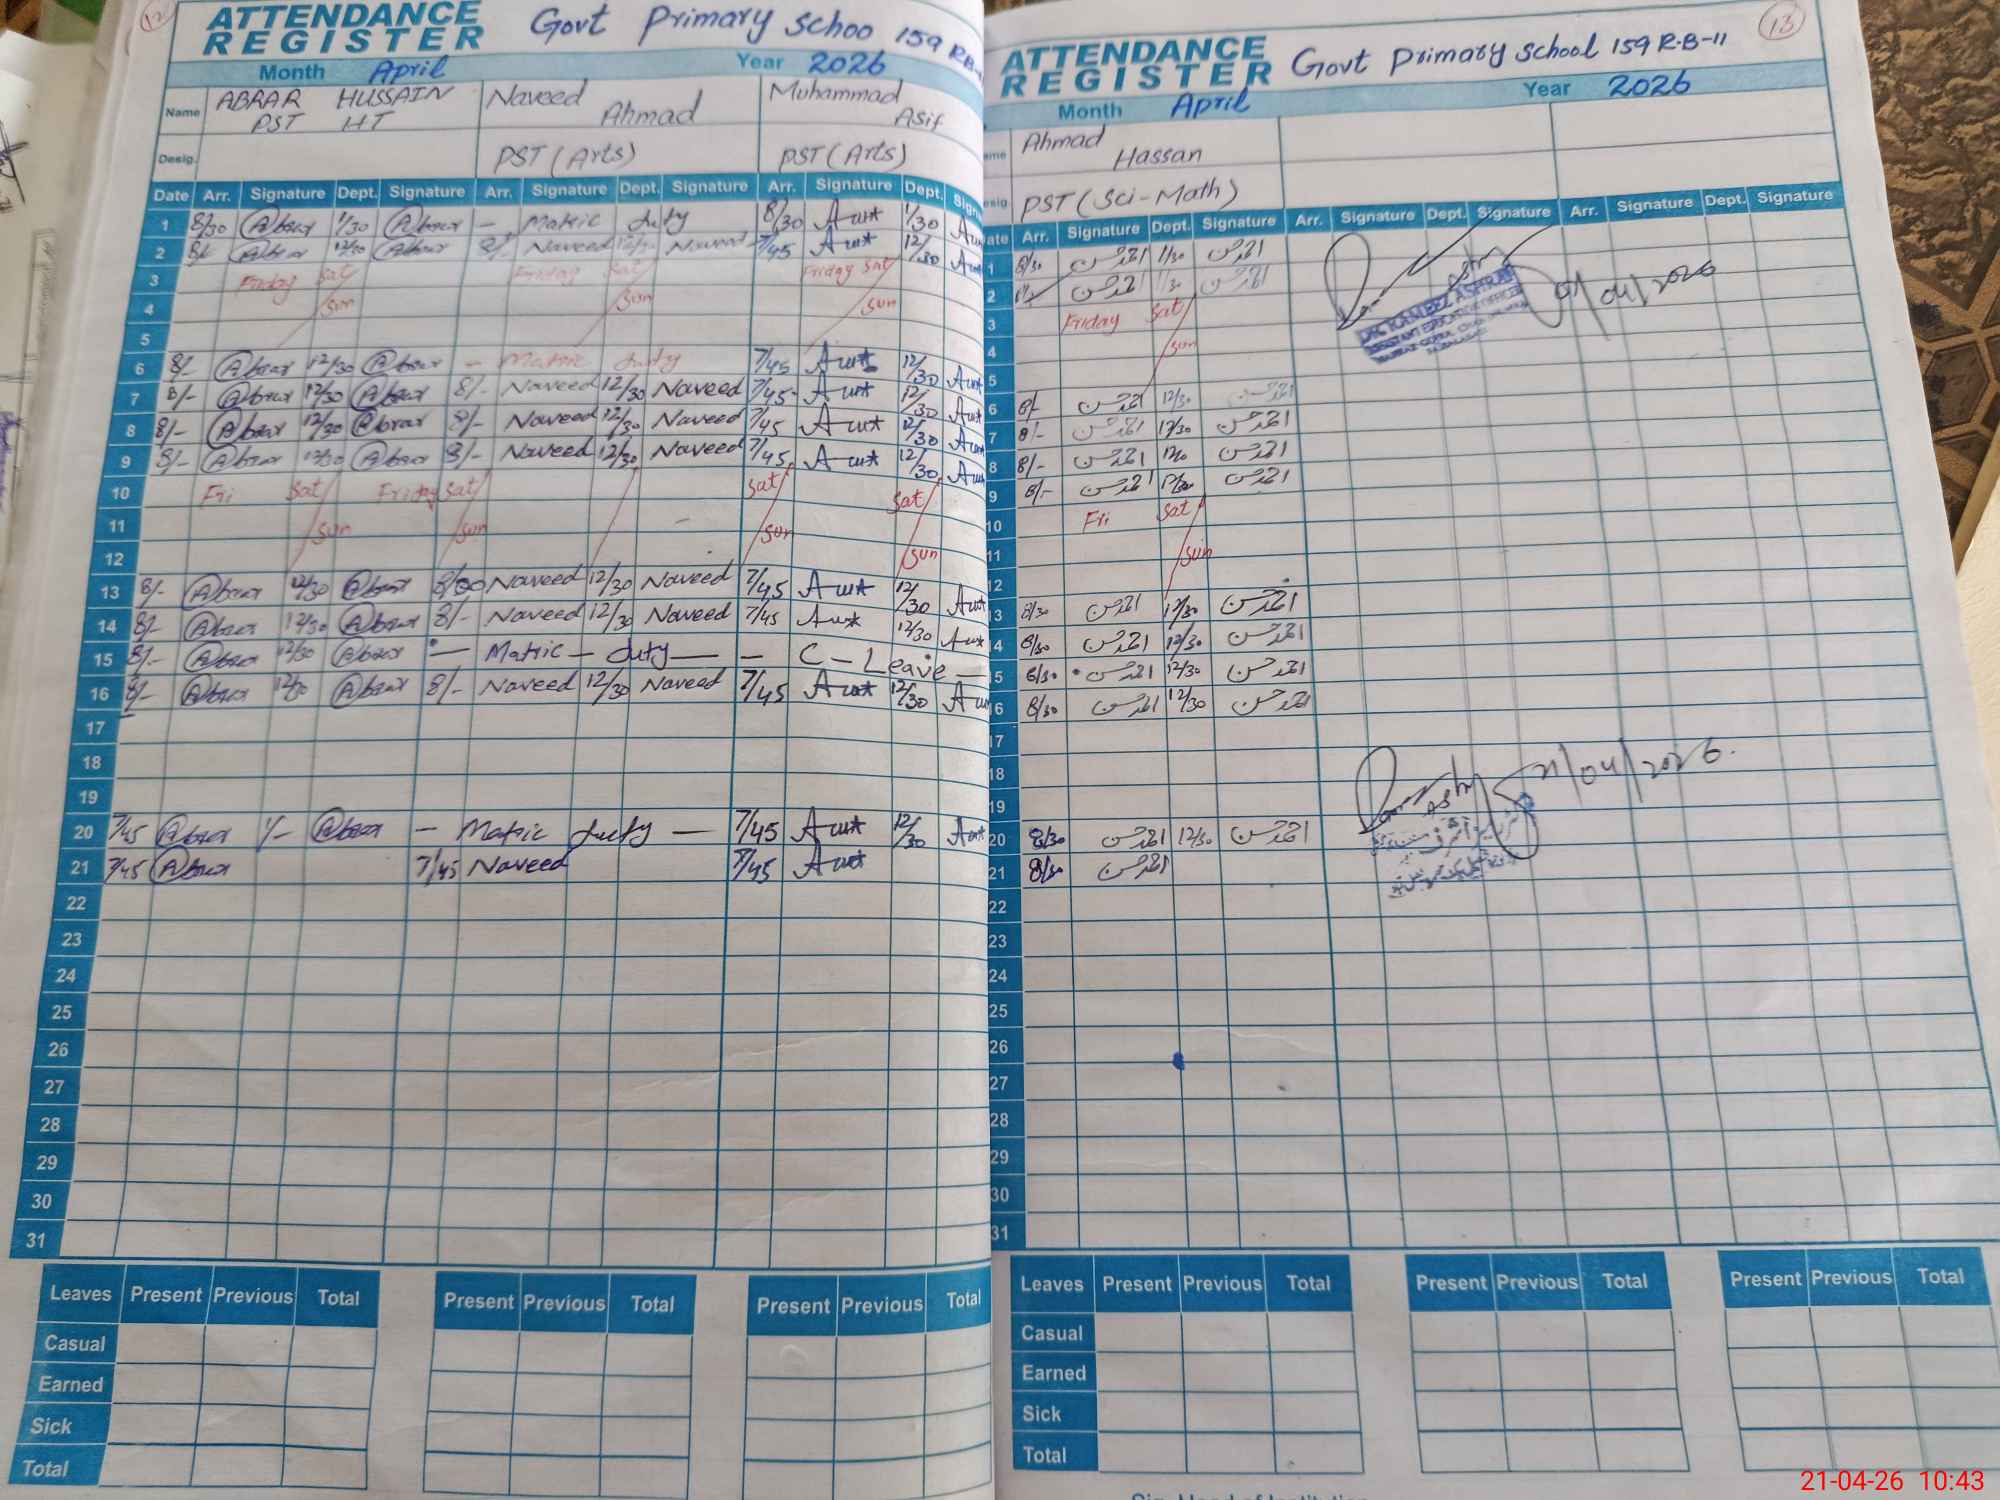 12
ATTENDANCE REGISTER Govt Primary Schoo 159 RB-11
Month April Year 2026
Name ABRAR HUSSAIN PST HT Naveed Ahmad Muhammad Asif
Desig. PST (Arts) PST (Arts)
Date Arr. Signature Dept. Signature Arr. Signature Dept. Signature Arr. Signature Dept. Sign
1 8/30 Abrar 1/30 Abrar - Matric duty 8/30 1/30
2 8/- Abrar 12/30 Abrar 8/- Naveed 12/30 Naveed 7/45 12/30
3 Friday Sat Friday Sat Friday Sat
4 Sun Sun Sun
5
6 8/- Abrar 12/30 Abrar - Matric duty 7/45 12/30
7 8/- Abrar 12/30 Abrar 8/- Naveed 12/30 Naveed 7/45 12/30
8 8/- Abrar 12/30 Abrar 8/- Naveed 12/30 Naveed 7/45 12/30
9 8/- Abrar 12/30 Abrar 8/- Naveed 12/30 Naveed 7/45 12/30
10 Fri Sat Friday Sat Sat Sat
11 Sun Sun Sun Sun
12
13 8/- Abrar 12/30 Abrar 8/00 Naveed 12/30 Naveed 7/45 12/30
14 8/- Abrar 12/30 Abrar 8/- Naveed 12/30 Naveed 7/45 12/30
15 8/- Abrar 12/30 Abrar - Matric - duty - - C - Leave -
16 8/- Abrar 12/30 Abrar 8/- Naveed 12/30 Naveed 7/45 12/30
17
18
19
20 7/45 Abrar 1/- Abrar - Matric duty - 7/45 12/30
21 7/45 Abrar 7/45 Naveed 7/45
22
23
24
25
26
27
28
29
30
31
Leaves Present Previous Total Present Previous Total Present Previous Total
Casual
Earned
Sick
Total
13
ATTENDANCE REGISTER Govt Primary School 159 R.B-11
Month April Year 2026
ame Ahmad Hassan
esig. PST (Sci-Math)
ate Arr. Signature Dept. Signature Arr. Signature Dept. Signature Arr. Signature Dept. Signature
1 8/30 احمد حسن 1/30 احمد حسن
2 احمد حسن 1/30 احمد حسن
01/04/2026
3 Friday Sat
4 Sun
5
6 8/- احمد حسن 12/30 احمد حسن
7 8/- احمد حسن 12/30 احمد حسن
8 8/- احمد حسن احمد حسن
9 8/- احمد حسن 12/30 احمد حسن
10 Fri Sat
11 Sun
12
13 8/30 احمد حسن 12/30 احمد حسن
4 8/30 احمد حسن 12/30 احمد حسن
5 8/30 احمد حسن 12/30 احمد حسن
6 8/30 احمد حسن 12/30 احمد حسن
17
18 21/04/2026
19
20 8/30 احمد حسن 12/30 احمد حسن
21 8/30 احمد حسن
22
23
24
25
26
27
28
29
30
31
Leaves Present Previous Total Present Previous Total Present Previous Total
Casual
Earned
Sick
Total
21-04-26 10:43